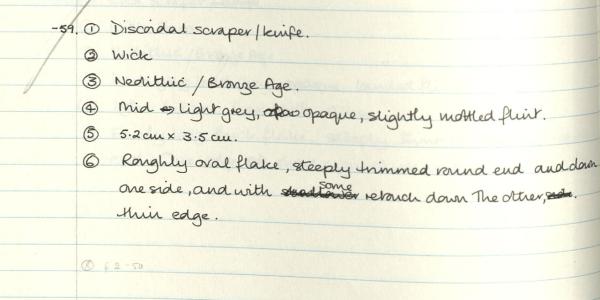 -59. ① Discoidal scraper/knife.
② Wick
③ Neolithic / Bronze Age.
④ Mid - light grey, opaque, slightly mottled flint.
⑤ 5.2cm x 3.5cm.
⑥ Roughly oval flake, steeply trimmed round end and down
one side, and with some retouch down the other,
thin edge.